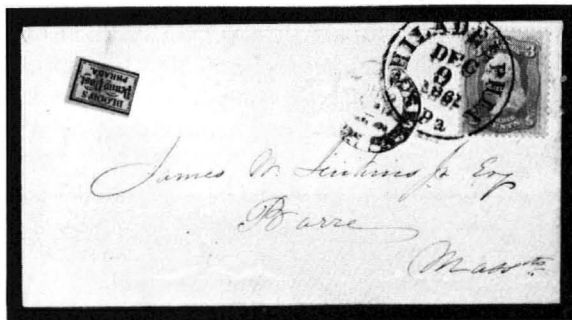 BLOOD'S
Penny Post
PHILADA.
PHILADELPHIA
DEC
9
1861
Pa
3
James W. Jenkins Jr Esq
Barre
Massts